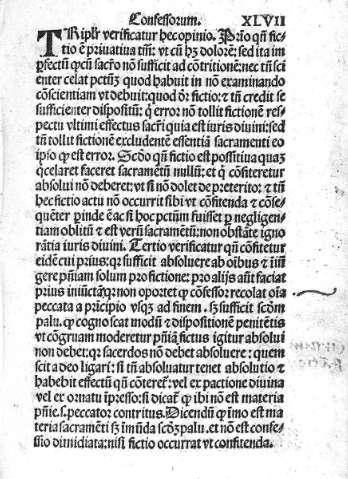 Confessorum. XLVII
TRiplr̃ verificatur hec opinio. Prīo qñ fic-
tio ē priuatiua tm̄: vt cū hʒ dolorē: sed ita im
ꝑfectū ꝙ cū sacr̃o nō sufficit ad cōtritionē: nec tn̄ sci
enter celat pctm̄ʒ quod habuit in nō examinando
cōscientiam vt debuit: quod ōr̄ fictio: ⁊ tn̄ credit se
sufficienter dispositū: q̇ error nō tollit fictionē res-
pectu vltimi effectus sacr̃i quia est iuris diuini: sed
tn̄ tollit fictionē excludentē essentiā sacramenti eo
ipso ꝙ est error. Scd̄o qn̄ fictio est possitiua quaʒ
q̇ celaret faceret sacramētū nullū: et q̇ cōfiteretur
absolui nō deberet: vt si nō dolet de preterito: ⁊ tn̄
hec fictio actu nō occurrit sibi vt cōfitenda ⁊ cōse-
quēter ꝑinde ē ac si hoc pctūm fuisset ꝑ negligen-
tiam oblitū ⁊ est verū sacramētū: non obstāte igno
rātia iuris diuini. Tertio verificatur qn̄ cōfitetur
eidē cui prius: qr sufficit absoluere ab oībus ⁊ iniū
gere pn̄iam solum pro fictione: pro alijs aūt faciat
prius iniūctā: qr non oportet ꝙ cōfessor recolat oīa
peccata a prīcipio vsqʒ ad finem. sʒ sufficit scōm
palu. ꝙ cognoscat modū ⁊ dispositionē penitētis
vt cōgruam moderetur pn̄iā. fictus igitur absolui
non debet: qr sacerdos nō debet absoluere: quem
scit a deo ligari: si tn̄ absoluatur tenet absolutio ⁊
habebit effectū qn̄ cōteret̃: vel ex pactione diuina
vel ex ornatu īpresso: si dicat̃ ꝙ ibi nō est materia
pn̄ie. s. peccator contritus. Dicendū ꝙ īmo est ma
teria sacramēti sʒ īmūda scōʒ palu. et nō est confe-
ssio dimidiata: nisi fictio occurrat vt confitenda.